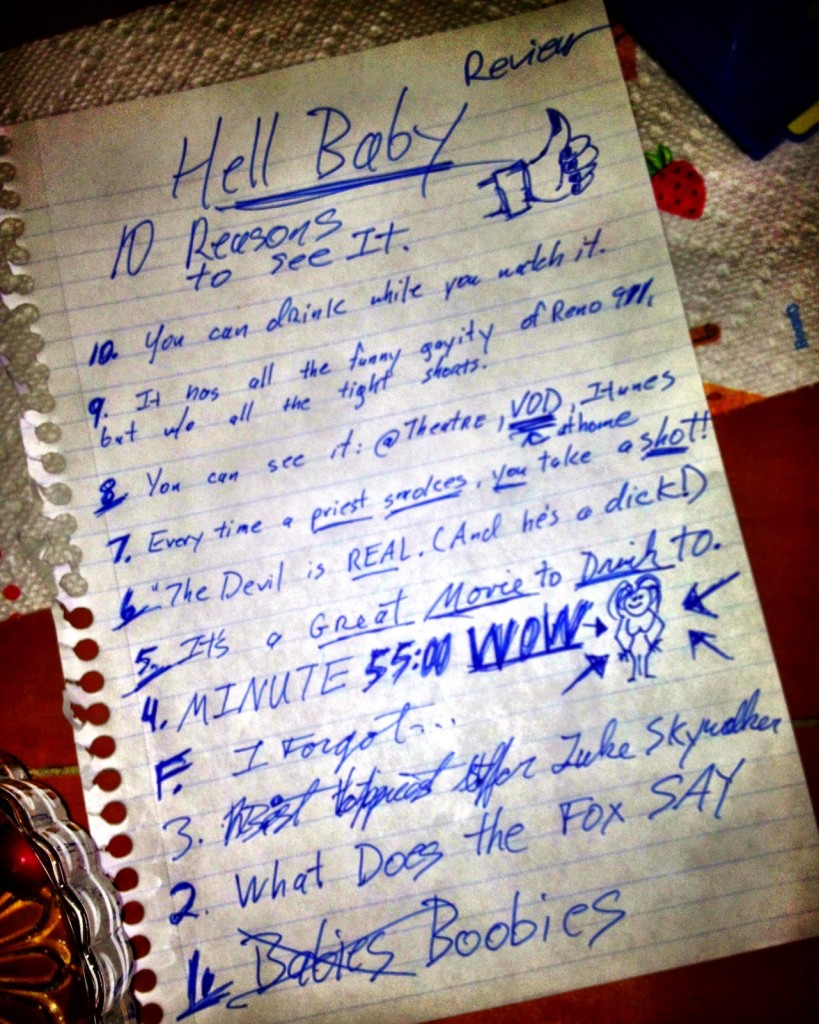 Review
Hell Baby
10 Reasons
to see It.
10. You can drink while you watch it.
9. It has all the funny gayity of Reno 911,
but w/o all the tight shorts.
8 You can see it: @Theatre, VOD, Itunes
at home
7. Every time a priest smokes, you take a shot!
6. "The Devil is REAL. (And he's a dick!)
5. It's a Great Movie to Drink to.
4. MINUTE 55:00 WOW
F. I Forgot...
3. Luke Skywalker
2. What Does the Fox SAY
1. Babies Boobies